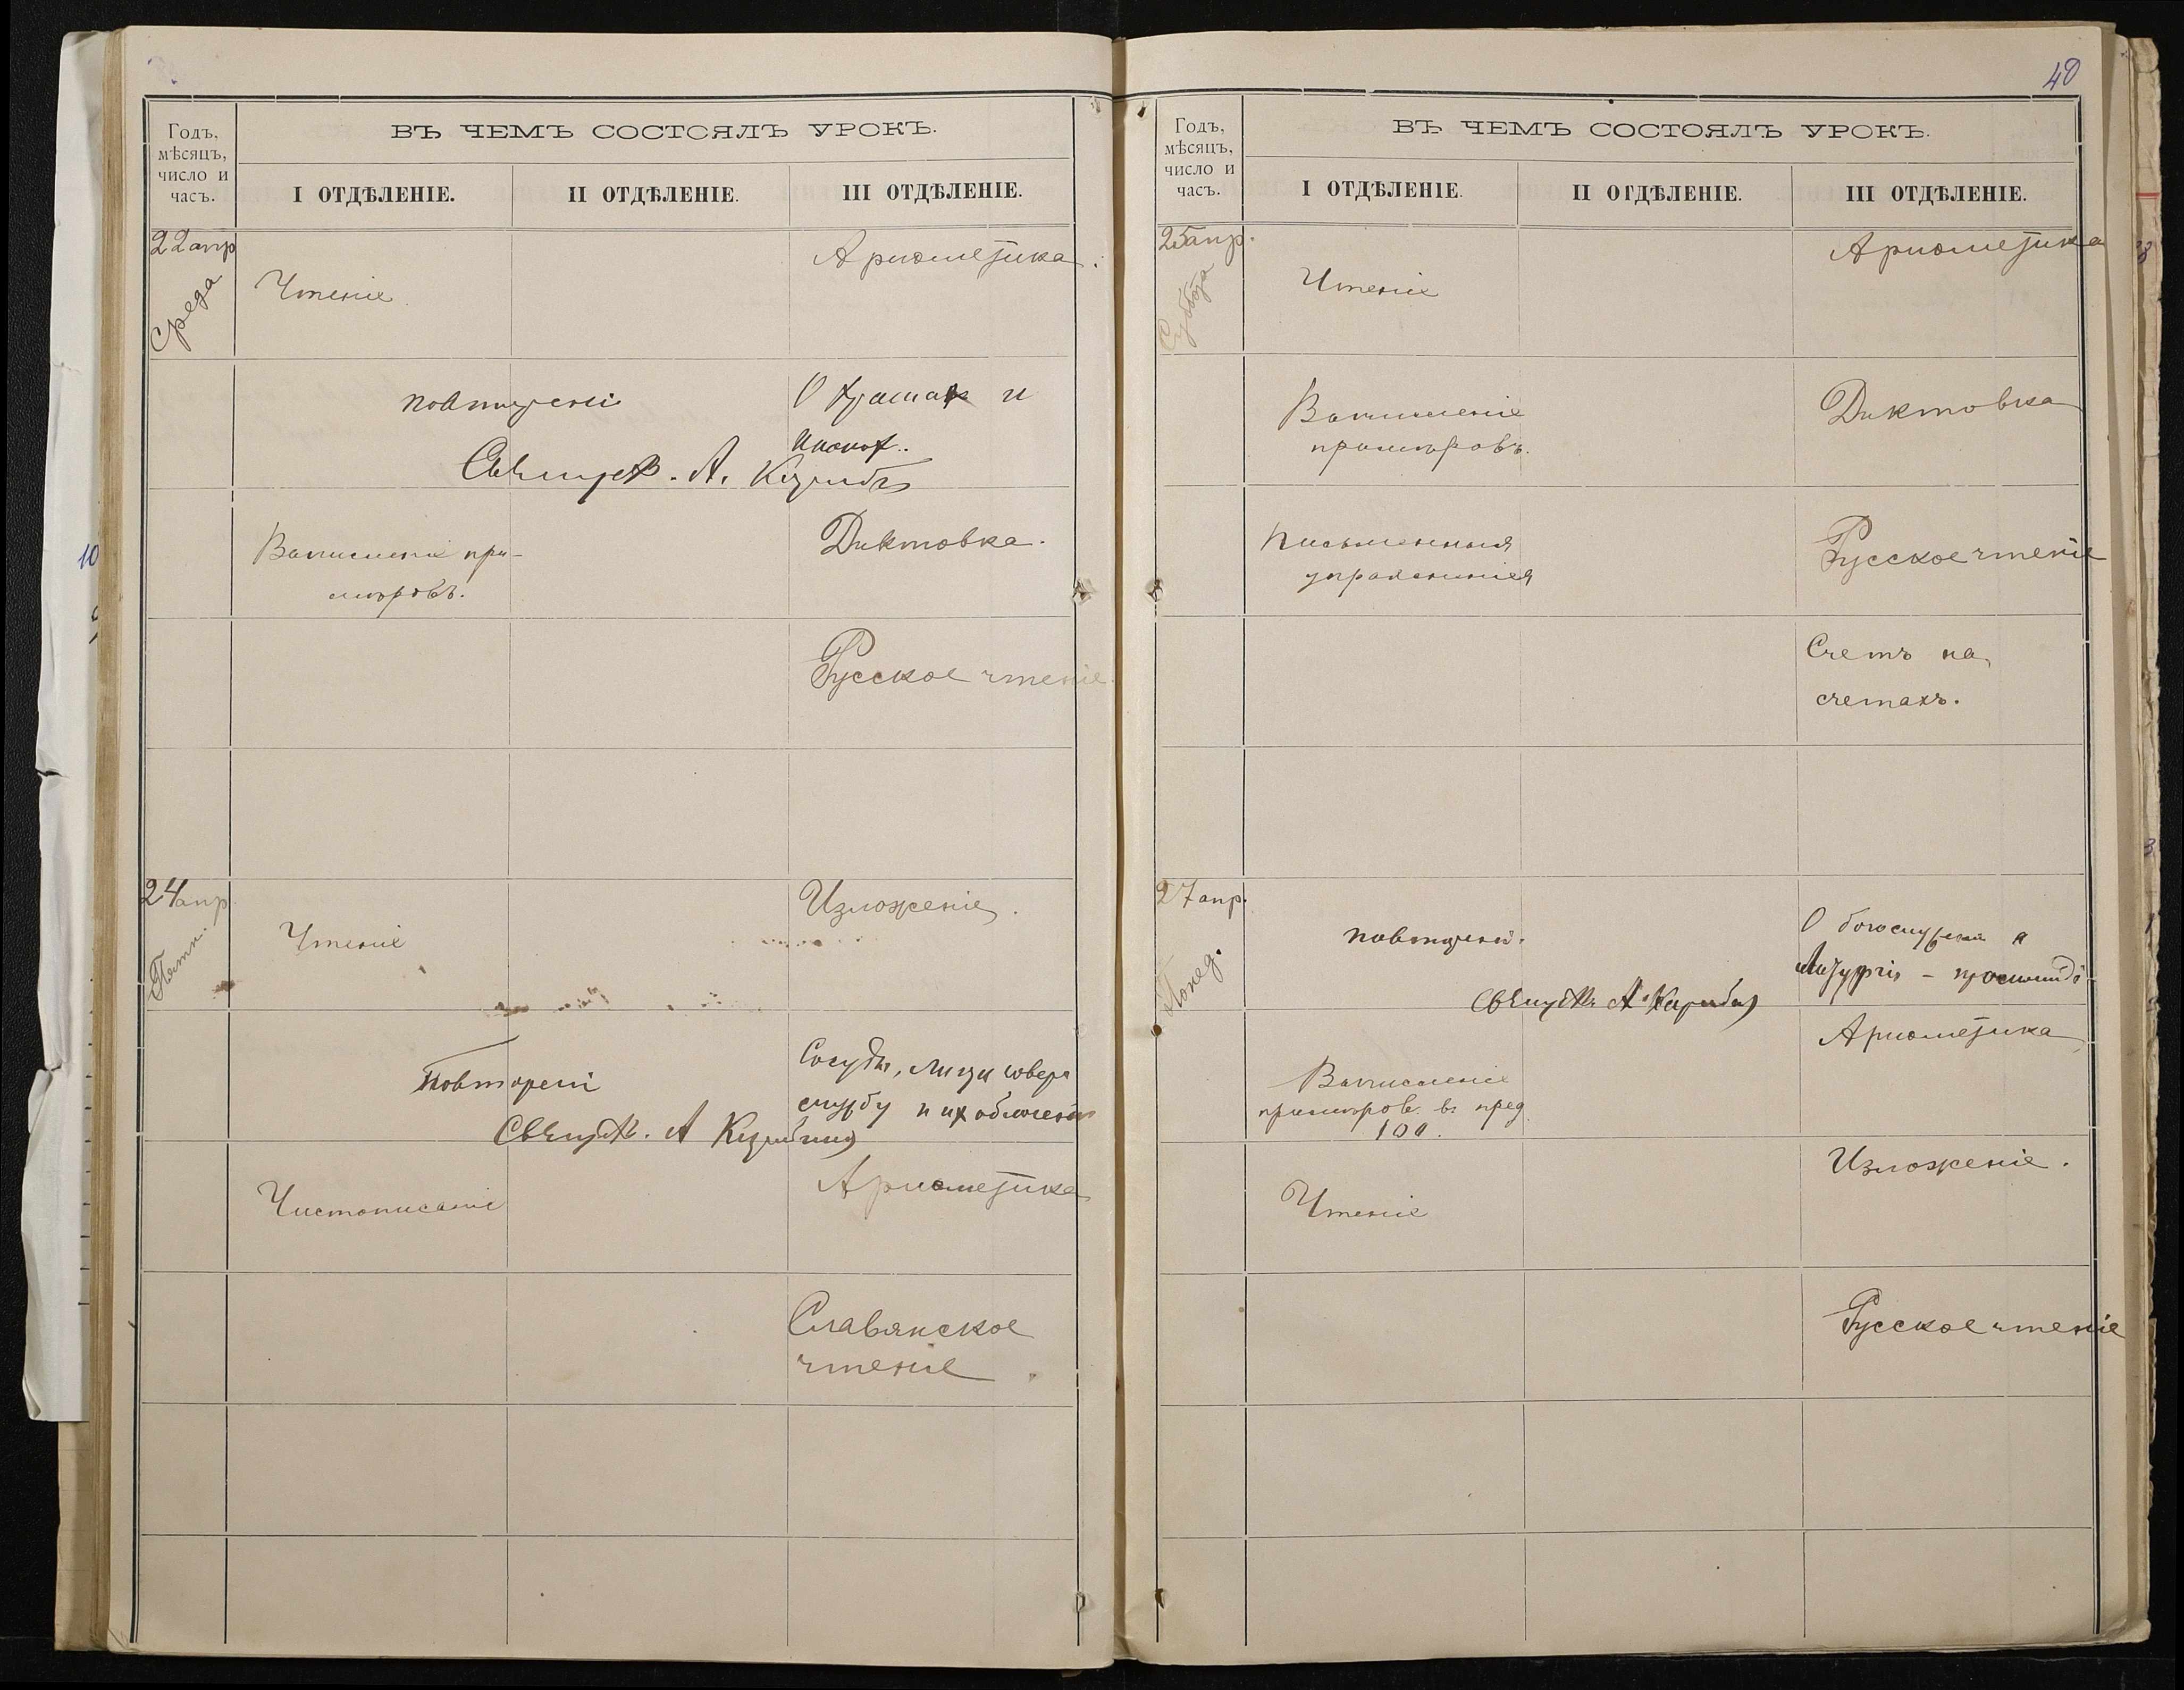 Годъ,
мѣсяцъ,
число и
часъ.
ВЪ ЧЕМЪ СОСТОЯЛЪ УРОКЪ.
I ОТДѢЛЕНІЕ. II ОТДѢЛЕНІЕ. III ОТДѢЛЕНІЕ.
22 апр
Среда
Чтеніе
Ариѳметика.
повторені
О храмах и
иконах..
Священ. А.
Вычисленіе при-
мѣровъ.
Диктовка.
Русское чтеніе.
24 апр
Пятн.
Чтеніе
Изложеніе.
Повторені
Сосуды, лица соверш
службу и их облаченія
Священ. А
Чистописаніе
Ариѳметика
Славянское
чтеніе.
40
Годъ,
мѣсяцъ,
число и
часъ.
ВЪ ЧЕМЪ СОСТОЯЛЪ УРОКЪ.
I ОТДѢЛЕНІЕ. II ОТДѢЛЕНІЕ. III ОТДѢЛЕНІЕ.
25 апр.
Суббота
Чтеніе
Ариѳметика
Вычисленіе
примѣровъ.
Диктовка
Письменныя
упражненія
Русское чтеніе
Счетъ на
счетахъ.
27 апр.
Понед.
повторені.
О богослужени
Литургія – проскомиді
Священ. А.
Вычисленіе
примѣров. въ пред.
100.
Ариѳметика
Чтеніе
Изложеніе.
Русское чтеніе